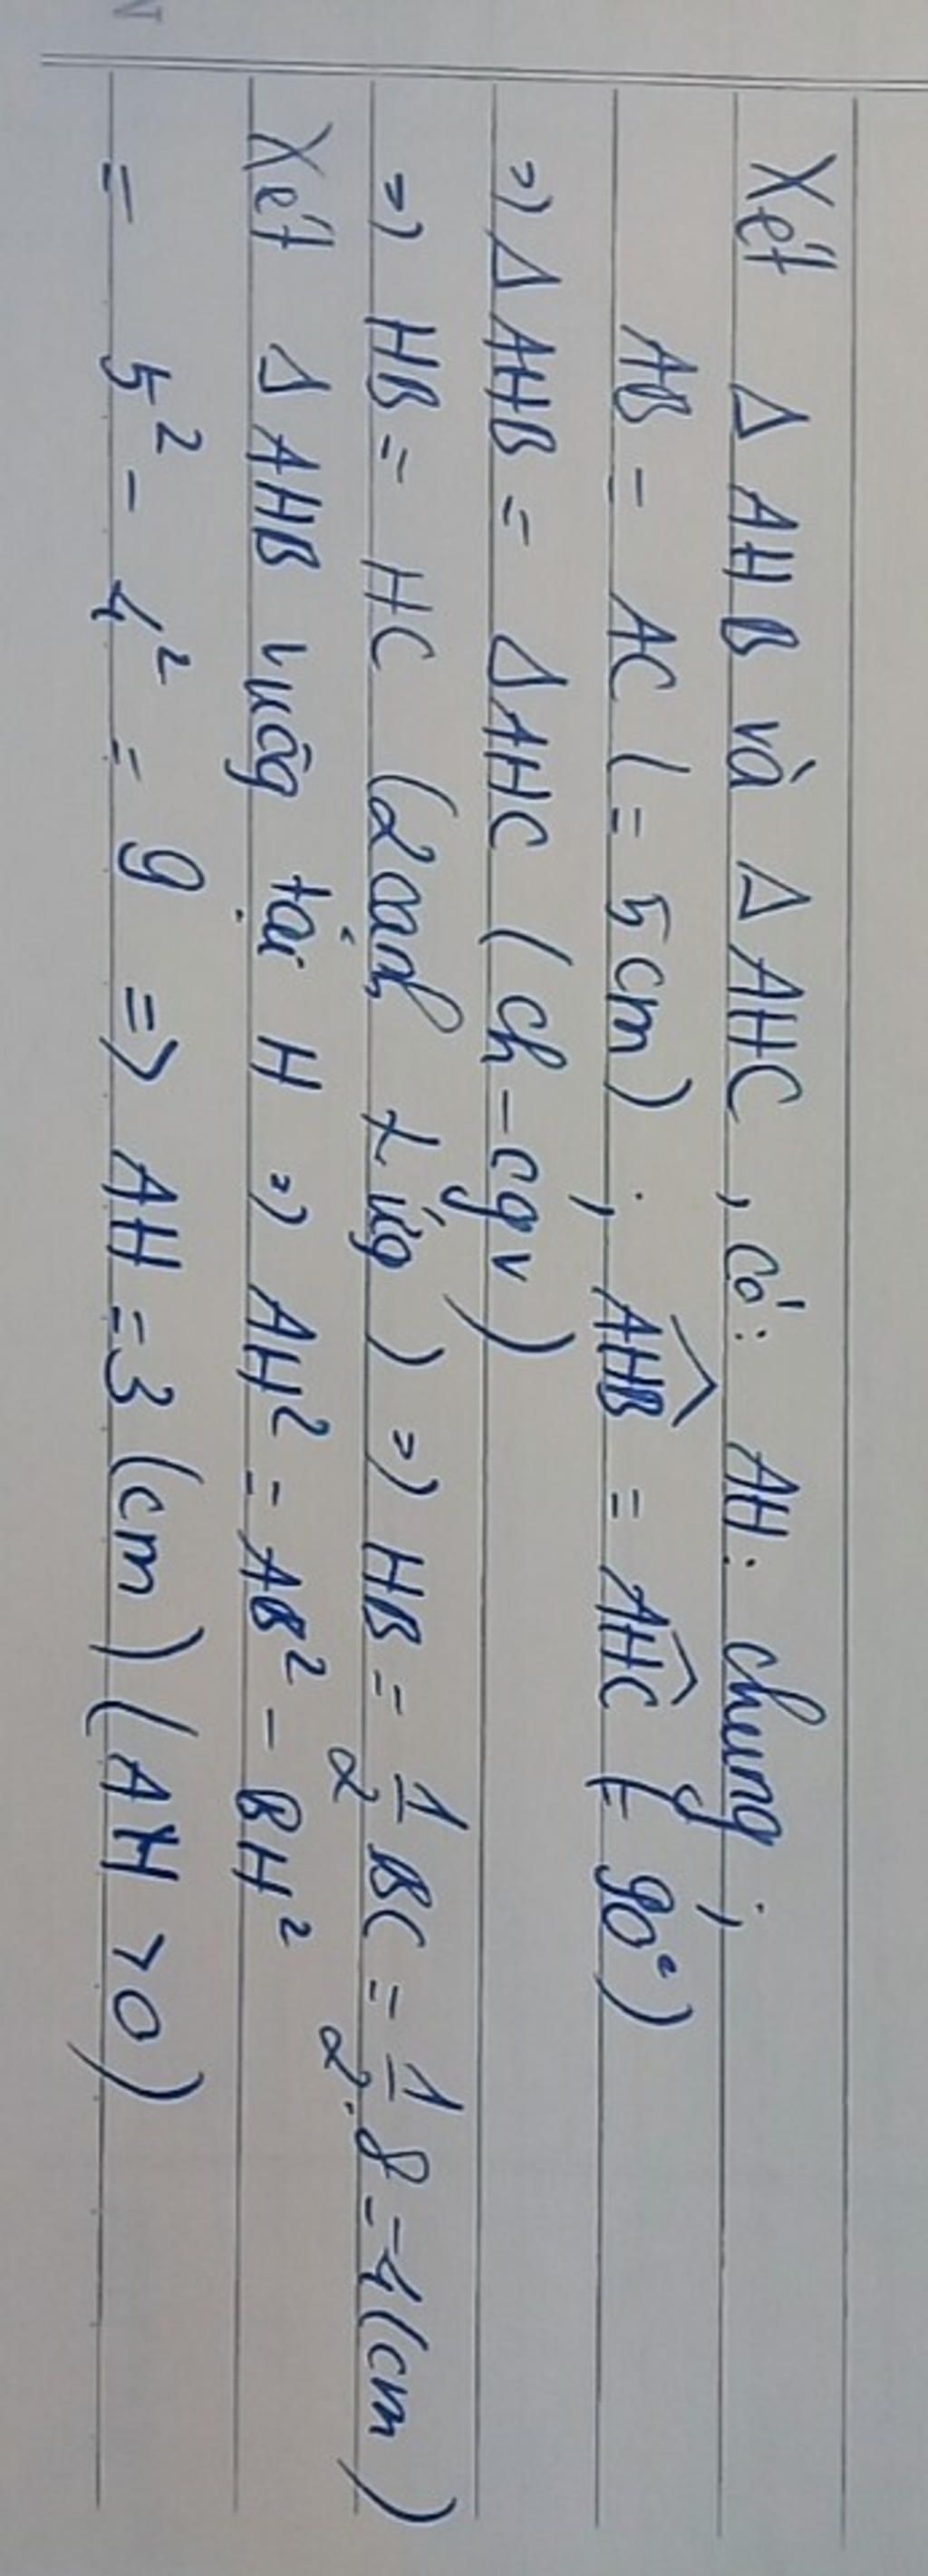 Xét Δ AHB và Δ AHC, có: AH: chung;
AB = AC (= 5cm); \widehat{AHB} = \widehat{AHC} (= 90°)
=> Δ AHB = Δ AHC (ch-cgv)
=> HB = HC (2 cạnh t. ứg) => HB = 1/2 BC = 1/2 . 8 = 4 (cm)
Xét Δ AHB vuôg tại H => AH² = AB² - BH²
= 5² - 4² = 9 => AH = 3 (cm) (AH > 0)